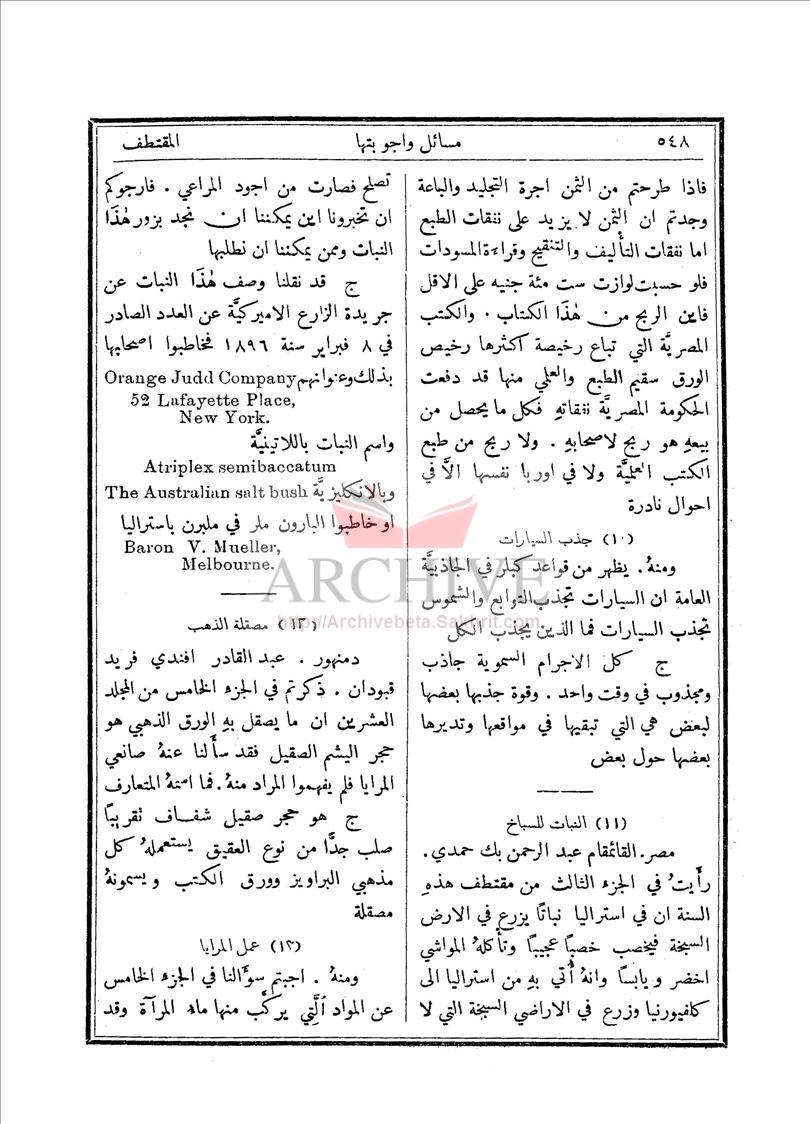 ٥٤٨
مسائل واجوبتها
المقتطف
فاذا طرحتم من الثمن اجرة التجليد والباعة
وجدتم ان الثمن لا يزيد على نفقات الطبع
اما نفقات التأليف والتنقيح وقراءة المسودات
فلو حسبت لوازت ست مئة جنيه على الاقل
فاين الربح من هٰذا الكتاب . والكتب
المصريَّة التي تباع رخيصة اكثرها رخيص
الورق سقيم الطبع والعلمي منها قد دفعت
الحكومة المصريَّة نفقاتهِ فكل ما يحصل من
بيعهِ هو ربح لاصحابهِ . ولا ربح من طبع
الكتب العلميَّة ولا في اوربا نفسها الاَّ في
احوال نادرة
(١٠) جذب السيارات
ومنهُ . يظهر من قواعد كبلر في الجاذبيَّة
العامة ان السيارات تجذب التوابع والشموس
تجذب السيارات فما الذين يجذب الكل
ج كل الاجرام السموية جاذب
ومجذوب في وقت واحد . وقوة جذبها بعضها
لبعض هي التي تبقيها في مواقعها وتديرها
بعضها حول بعض
(١١) النبات للسباخ
مصر. القائمقام عبد الرحمن بك حمدي.
رأَيتُ في الجزء الثالث من مقتطف هذهِ
السنة ان في استراليا نباتًا يزرع في الارض
السبخة فيخصب خصبًا عجيبًا وتأكلهُ المواشي
اخضر ويابسًا وانهُ أُتي بهِ من استراليا الى
كلفيورنيا وزرع في الاراضي السبخة التي لا
تصلح فصارت من اجود المراعي . فارجوكم
ان تخبرونا اين يمكننا ان نجد بزور هٰذا
النبات وممن يمكننا ان نطلبها
ج قد نقلنا وصف هٰذا النبات عن
جريدة الزارع الاميركيَّة عن العدد الصادر
في ٨ فبراير سنة ١٨٩٦ فخاطبوا اصحابها
بذلك وعنوانهم Orange Judd Company
52 Lafayette Place,
New York.
واسم النبات باللاتينيَّة
Atriplex semibaccatum
وبالانكليزيَّة The Australian salt bush
او خاطبوا البارون ملر في ملبرن باستراليا
Baron V. Mueller,
Melbourne.
(١٢) مصقلة الذهب
دمنهور . عبد القادر افندي فريد
قبودان . ذكرتم في الجزء الخامس من المجلد
العشرين ان ما يصقل بهِ الورق الذهبي هو
حجر اليشم الصقيل فقد سأَلنا عنهُ صانعي
المرايا فلم يفهموا المراد منهُ . فما اسمهُ المتعارف
ج هو حجر صقيل شفاف تقريبًا
صلب جدًّا من نوع العقيق يستعملهُ كل
مذهبي البراويز وورق الكتب ويسمونهُ
مصقلة
(١٣) عمل المرايا
ومنهُ . اجبتم سؤَالنا في الجزء الخامس
عن المواد الَّتِي يركَّب منها ماء المرآة وقد
ARCHIVE
http://Archivebeta.Sakhrit.com